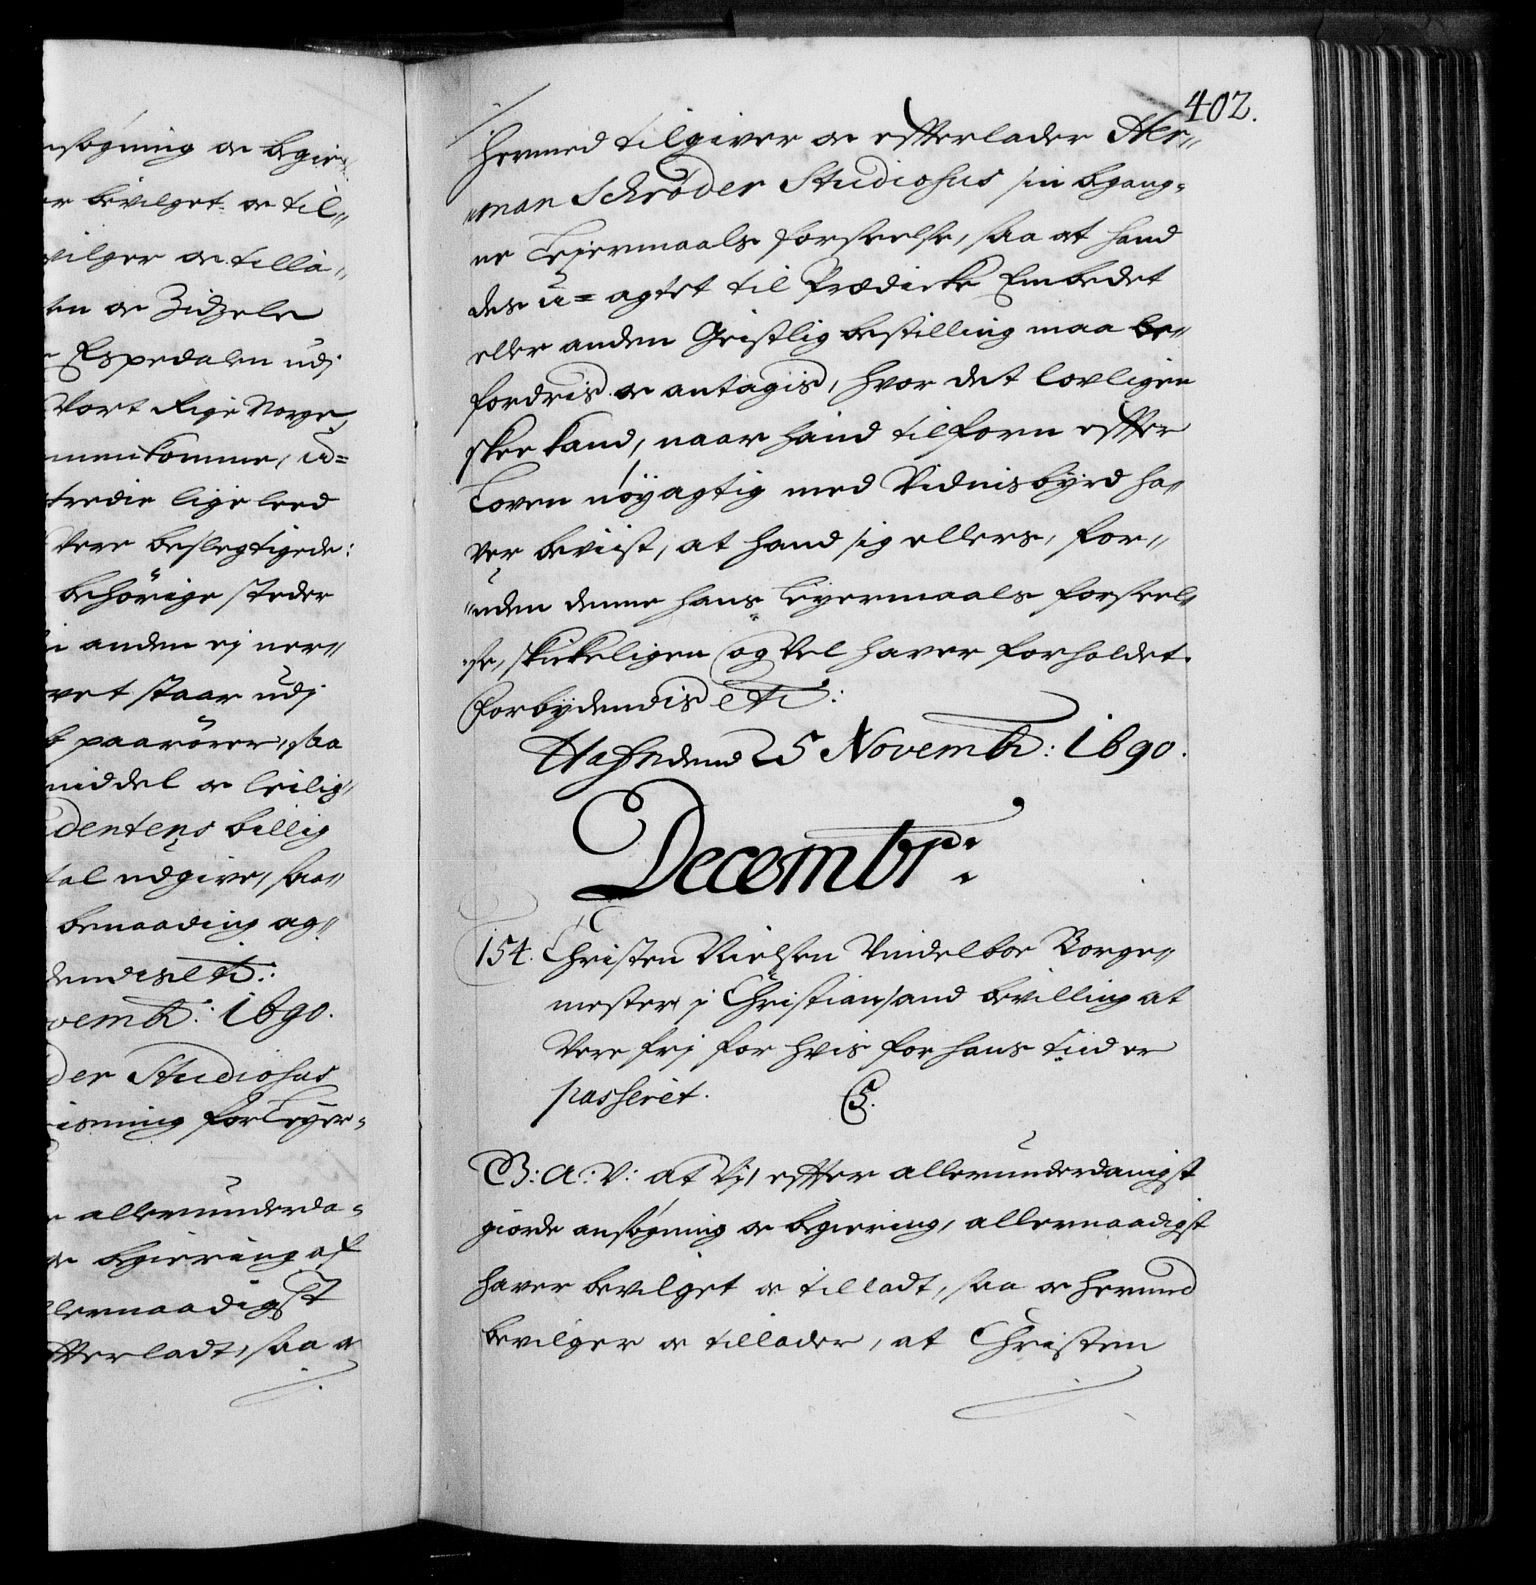 nsøgning oc begie-
er bevilget oc til-
vilger oc tilla-
ten oc Zidzele
Espedalen udj
Vort Rige Norge,
mmenkomme, u-
tredie lige leed
Vere beslegtigede:
behörige steder
anden ej ner-
vet staar udj
paarörer, saa
middel oc leilig-
dentens billig
tal udgive, saa-
benaading ag-
dendis etc:
vembr: 1690.
der Studiosus
isning for Leyer-
allerunderda-
oc begiering af
llernaadigst
fterladt, saa oc
402.
hermed tilgiver oc effterlader Her-
man Schrøder Studiosus sin begang-
ne Lejermaals forseelse, saa at hand
des u-agtet til Prædicke Embedet
eller anden Geistlig bestilling maa be-
fordris oc antagis, hvor det lovligen
skee kand, naar hand tilforn effter
Loven nøyagtig med Vidnisbyrd ha-
ver beviist, at hand sig ellers, for-
uden denne hans Leyermaals forseel-
se, skickeligen og Vel haver forholdet.
Forbydendis etc:
Hafn dend 25 Novembr: 1690.
Decembr:
154. Christen Nielsen Vindelboe Borge-
mester j Christiansand bevilling at
Vere frj for hvis for hans tiid er
passeret. C5.
G: A: V: at Vj, effter allerunderdanigst
giorde ansøgning oc begiering, allernaadigst
haver bevilget oc tilladt, saa oc hermed
bevilger oc tillader, at Christen